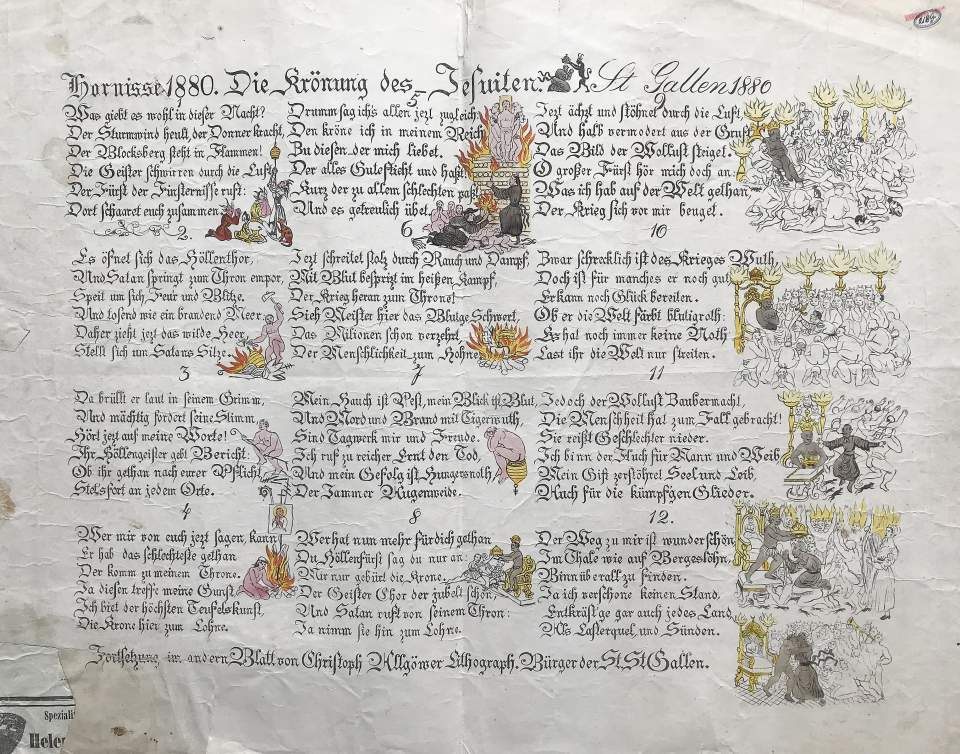 Hornisse 1880. Die Krönung des Jesuiten. St Gallen 1880
1
Was giebt es wohl in dieser Nacht?
Der Sturmwind heult, der Donner kracht,
Der Blocksberg steht in Flammen!
Die Geister schwirren durch die Luft
Der Fürst der Finsternisse ruft:
Dort schaaret euch zusammen
2.
Es öfnet sich das Höllenthor,
Und Satan springt zum Thron empor,
Speit um sich, Feur und Blitze.
Und tosend wie ein brandend Meer
Daher zieht jezt das wilde Heer,
Stellt sich um Satans Sitze.
3
Da brüllt er laut in seinem Grimm,
Und mächtig fordert seine Stimm
Hört jezt auf meine Worte!
Ihr Höllengeister gebt Bericht:
Ob ihr gethan nach eurer Pflicht
Stetsfort an jedem Orte.
4
Wer mir von euch jezt sagen, kann
Er hab das schlechteste gethan
Der komm zu meinem Throne.
Ja diesen treffe meine Gunst
Ich biet der höchsten Teufelskunst,
Die Krone hier zum Lohne.
5
Drumm sag ich's allen jezt zugleich
Den kröne ich in meinem Reich
Zu diesen der mich liebet.
Der alles Gute flieht und haßt
Kurz der zu allem schlechten paßt
Und es getreulich übet
6
Jezt schreitet stolz durch Rauch und Dampf,
Mit Blut besprizt im heißen Kampf,
Der Krieg heran zum Throne!
Sieh Meister hier das Blutge Schwert
Das Milionen schon verzehrt
Der Menschlichkeit zum Hohne
7
Mein Hauch ist Pest, mein Blick ist Blut,
Und Mord und Brand mit Tigerwuth,
Sind Tagwerk mir und Freude.
Ich ruf zu reicher Ernt den Tod
Und mein Gefolg ist Hungersnoth,
Der Jammer Augenweide.
8
Wer hat nun mehr für dich gethan
Du Höllenfürst sag du nur an:
Mir nur gebürt die Krone.
Der Geister Chor der jubelt schon,
Und Satan ruft von seinem Thron:
Ja nimm sie hin zum Lohne.
9
Jezt ächzt und stöhnet durch die Luft,
Und halb vermodert aus der Gruft
Das Bild der Wollust steiget.
O großer Fürst hör mich doch an
Was ich hab auf der Welt gethan
Der Krieg sich vor mir beuget.
10
Zwar schrecklich ist des Krieges Wuth,
Doch ist für manches er noch gut
Er kann noch Glück bereiten.
Ob er die Welt färbt blutigroth:
Es hat noch immer keine Noth
Last ihr die Welt nur streiten.
11
Jedoch der Wollust Zaubermacht,
Die Menschheit hat zum Fall gebracht!
Sie reißt Geschlechter nieder.
Ich binn der Fluch für Mann und Weib
Mein Gift zerstöhret Seel und Leib
Auch für die kümpfgen Glieder.
12.
Der Weg zu mir ist wunderschön
Im Thale wie auf Bergeshöhn,
Binn überall zu finden.
Ja ich verschone keinen Stand,
Entkräftge gar auch jedes Land
Als Lasterquel, und Sünden.
Fortsetzung im andern Blatt von Christoph Allgöwer Lithograph. Bürger der St. St Gallen.
Speziali
Hele